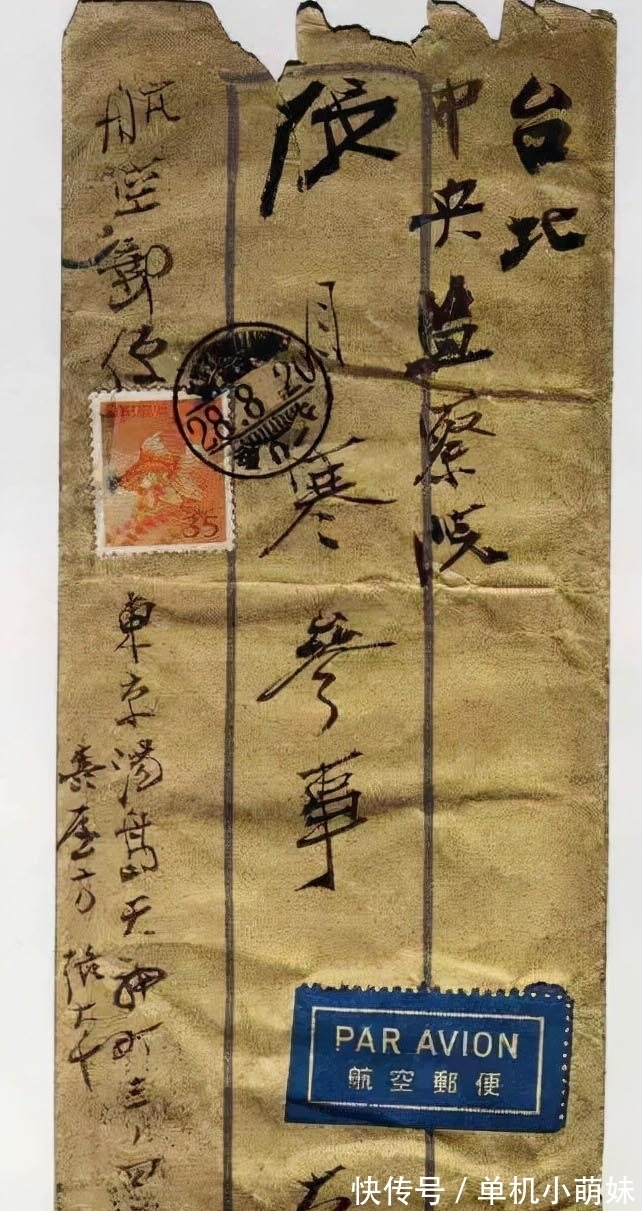 台北
中央監察院
張目寒參事
航空郵便
28.8.20
35
東京湯島天神町三ノ四
張大千
PAR AVION
航空郵便
快传号 / 单机小萌妹